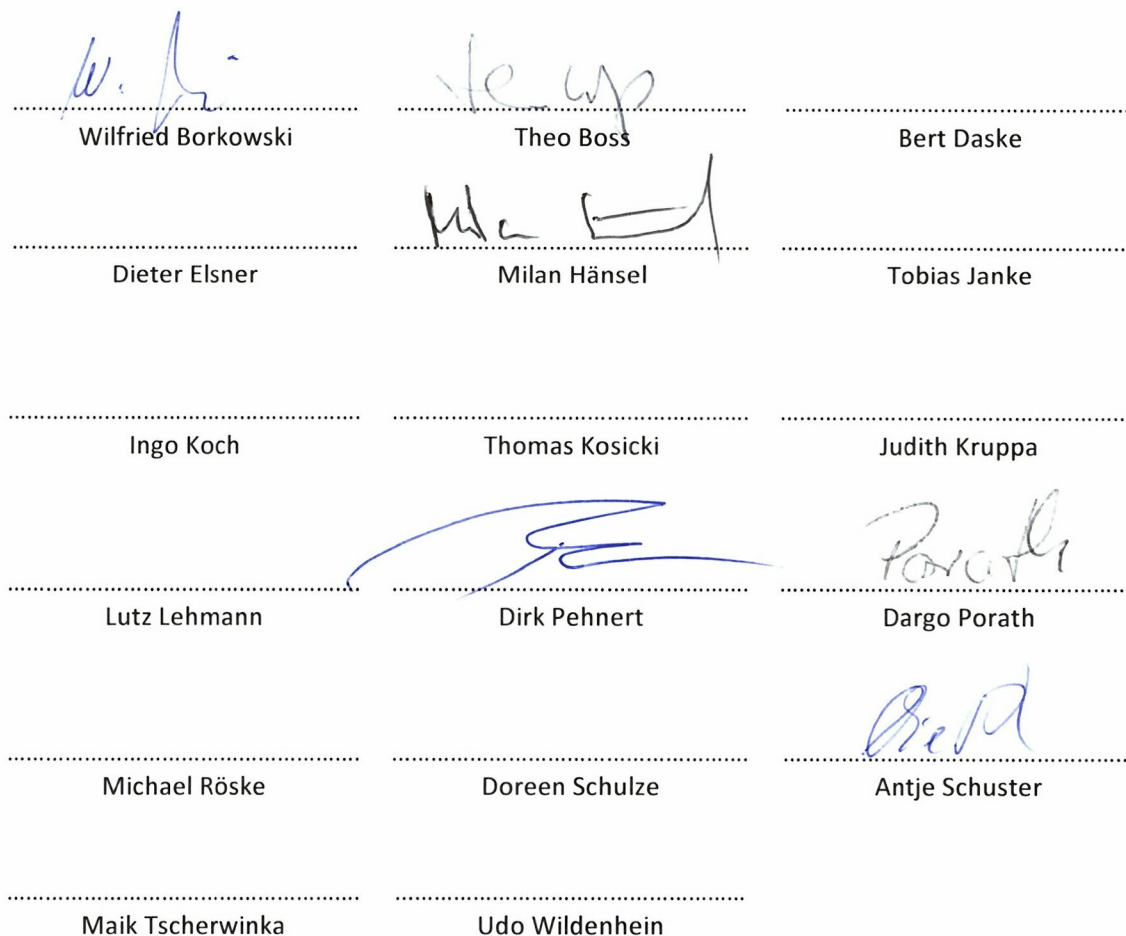 Wilfried Borkowski Theo Boss Bert Daske
Milan
Dieter Elsner Milan Hänsel Tobias Janke
Ingo Koch Thomas Kosicki Judith Kruppa
Porath
Lutz Lehmann Dirk Pehnert Dargo Porath
Michael Röske Doreen Schulze Antje Schuster
Maik Tscherwinka Udo Wildenhein